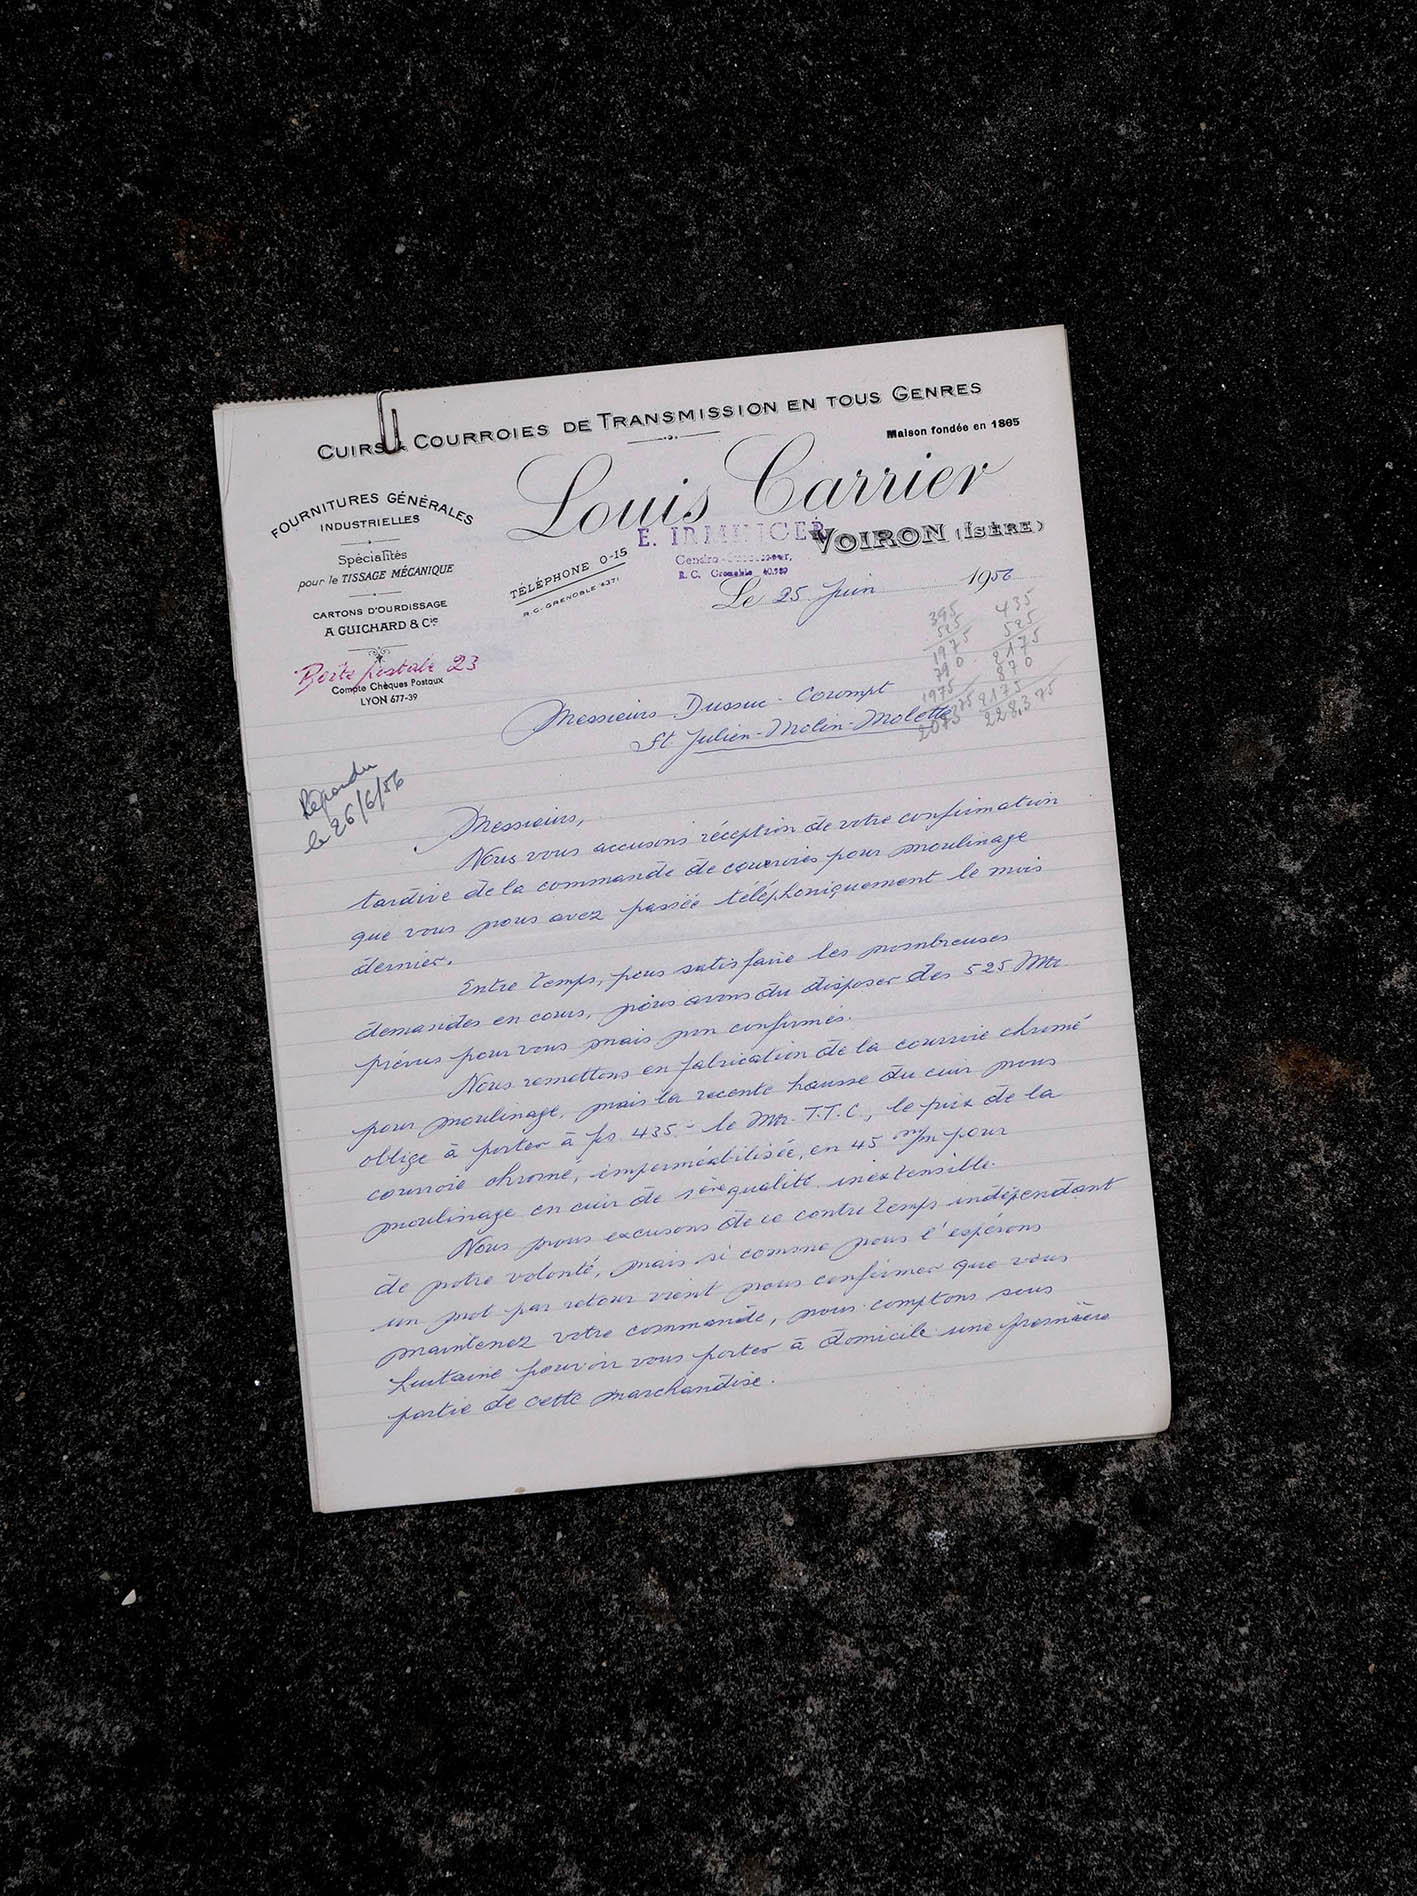 CUIRS & COURROIES DE TRANSMISSION EN TOUS GENRES
Maison fondée en 1865
Louis Carrier
FOURNITURES GÉNÉRALES
INDUSTRIELLES
Spécialités
pour le TISSAGE MÉCANIQUE
CARTONS D'OURDISSAGE
A GUICHARD & Cie
Boîte postale 23
Compte Chèques Postaux
LYON 677-39
E. IRMINGER
Gendre
R. C. Grenoble
VOIRON (ISÈRE)
TÉLÉPHONE 0-15
R.C. GRENOBLE 4371
Le 25 Juin 1956
395 435
525 525
1975 2175
790 870
1975 2175
228.375
Messieurs Dussuc-Corompt
St Julien-Molin-Molette
Répondu
le 26/6/56
Messieurs,
Nous vous accusons réception de votre confirmation
tardive de la commande de courroies pour moulinage
que vous nous avez passée téléphoniquement le mois
dernier.
Entre temps, pour satisfaire les nombreuses
demandes en cours, nous avons du disposer des 525 Mtr
prévus pour vous mais non confirmés.
Nous remettons en fabrication de la courroie chromé
pour moulinage, mais la recente hausse du cuir nous
oblige à porter à frs 435.- le Mtr. T.T.C., le prix de la
courroie chrome, imperméabilisée, en 45 m/m pour
moulinage en cuir de 1ère qualité inextensible.
Nous nous excusons de ce contre temps indépendant
de notre volonté, mais si comme nous l'espérons
un mot par retour vient nous confirmer que vous
maintenez votre commande, nous comptons sous
huitaine pouvoir vous porter à domicile une première
partie de cette marchandise.